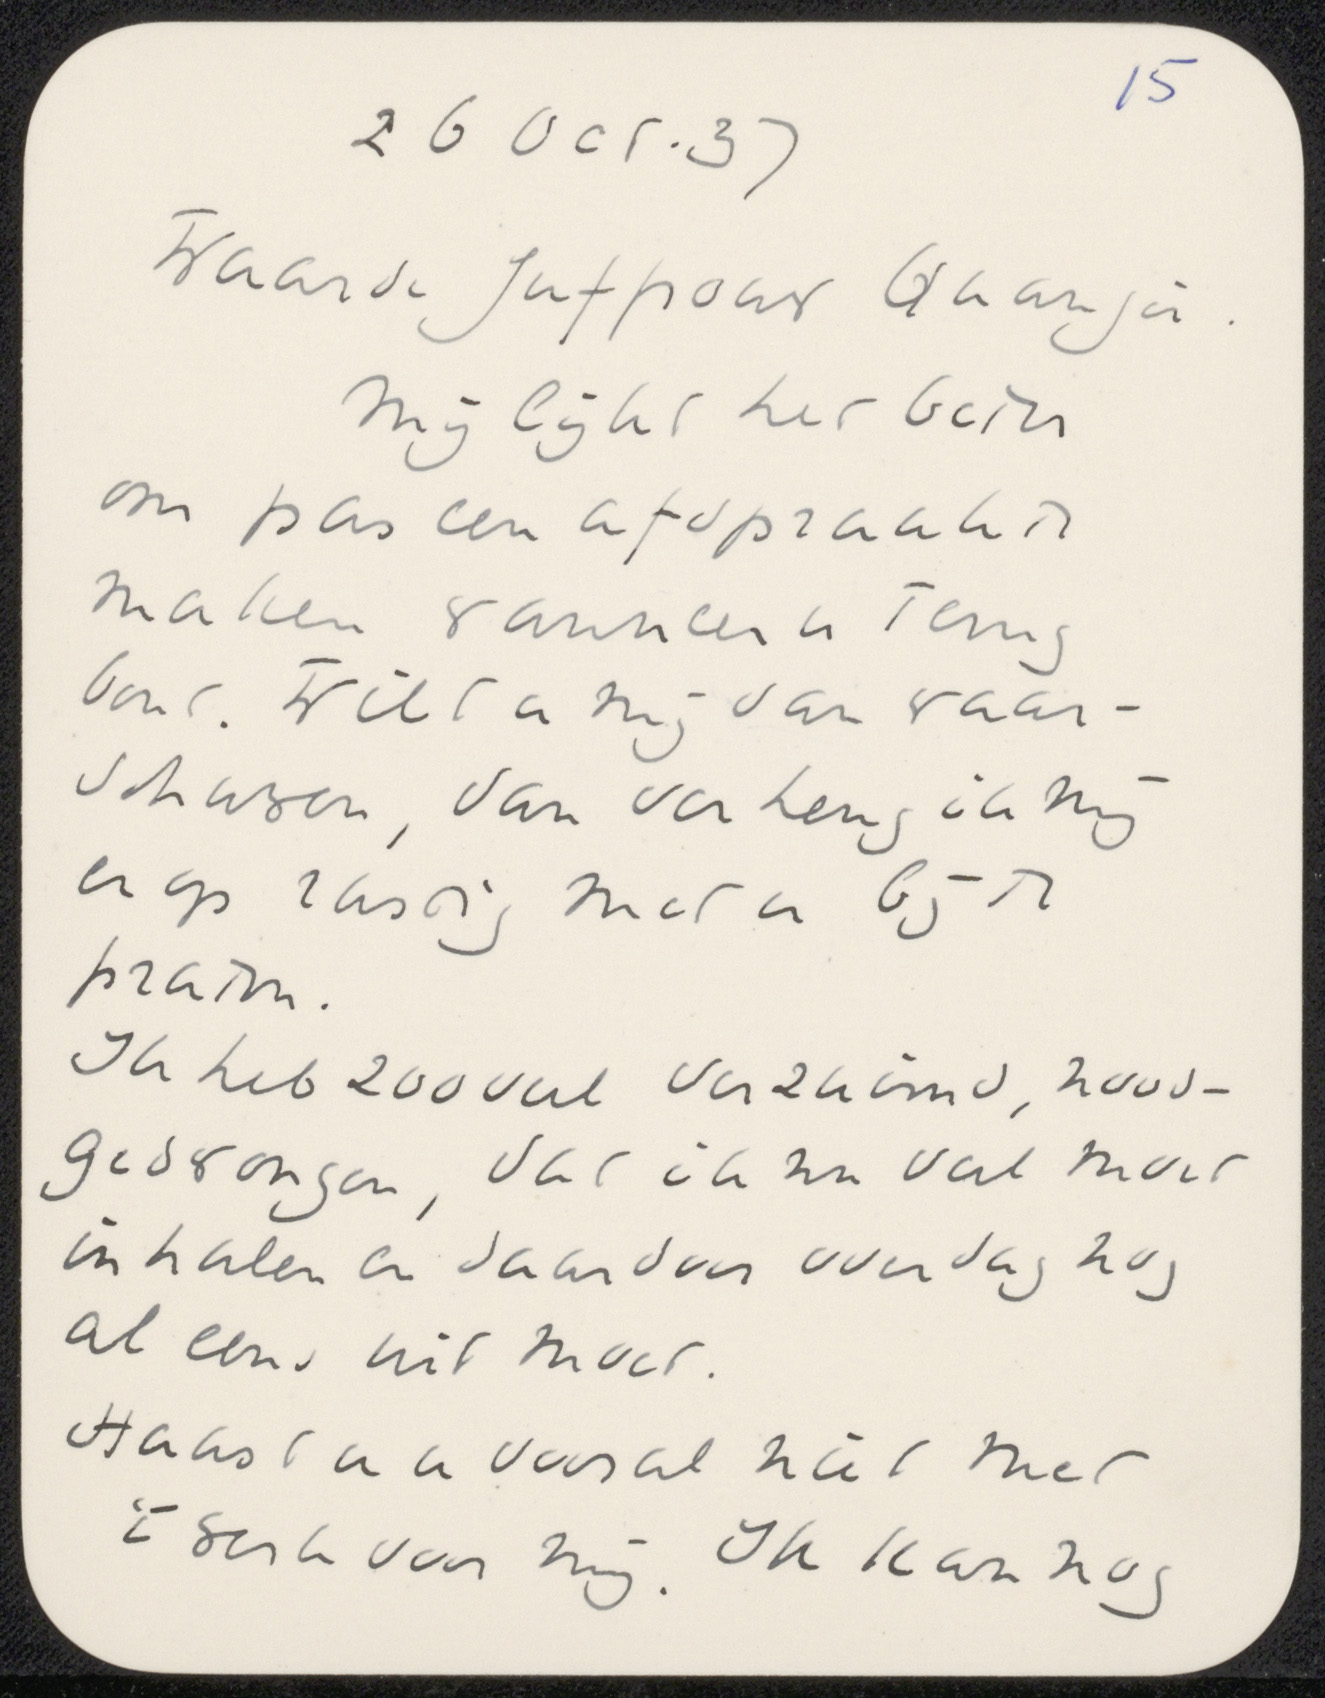 15
26 Oct. 37
Waarde Juffrouw
Mij lijkt het beter
om pas een afspraak te
maken wanneer u terug
bent. Wilt u mij dan waar-
schuwen, dan verheug ik mij
er op rustig met u bij te
praten.
Ik heb zooveel verzuimd, nood-
gedwongen, dat ik nu veel moet
inhalen en daardoor overdag nog
al eens uit moet.
Haast u u vooral niet met
't werk voor mij. Ik kan nog